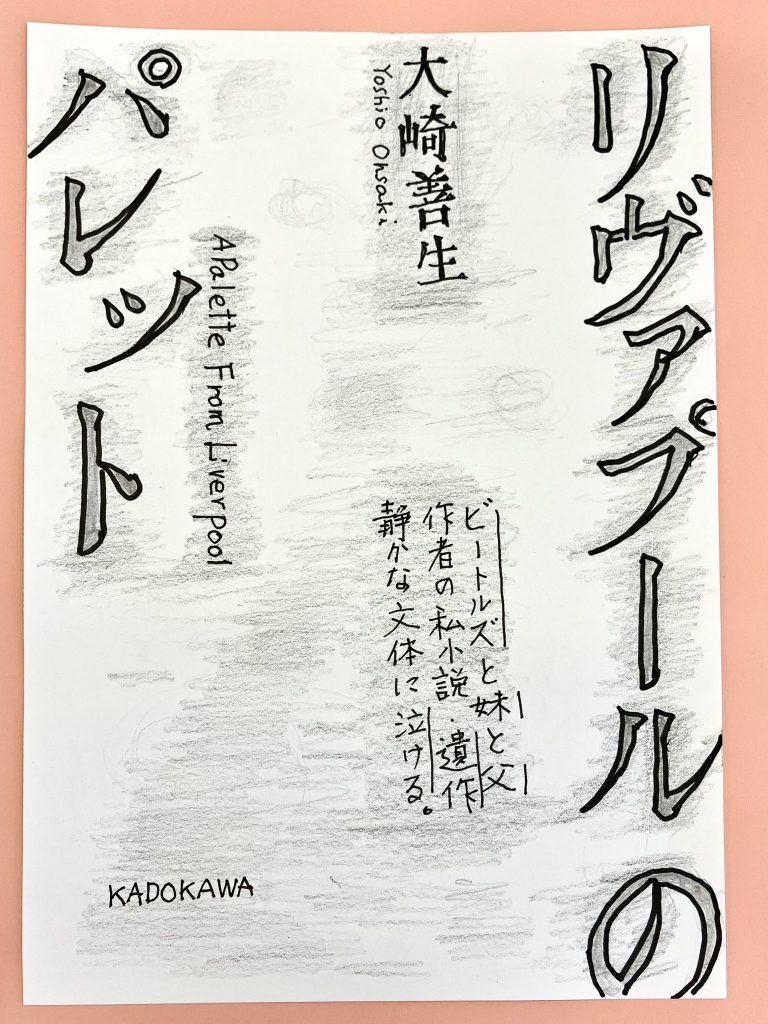 リヴァプールの
大崎善生
Yoshio Ohsaki
ビートルズと妹と父
作者の私小説.遺作
静かな文体に泣ける。
A Palette From Liverpool
パレット
KADOKAWA